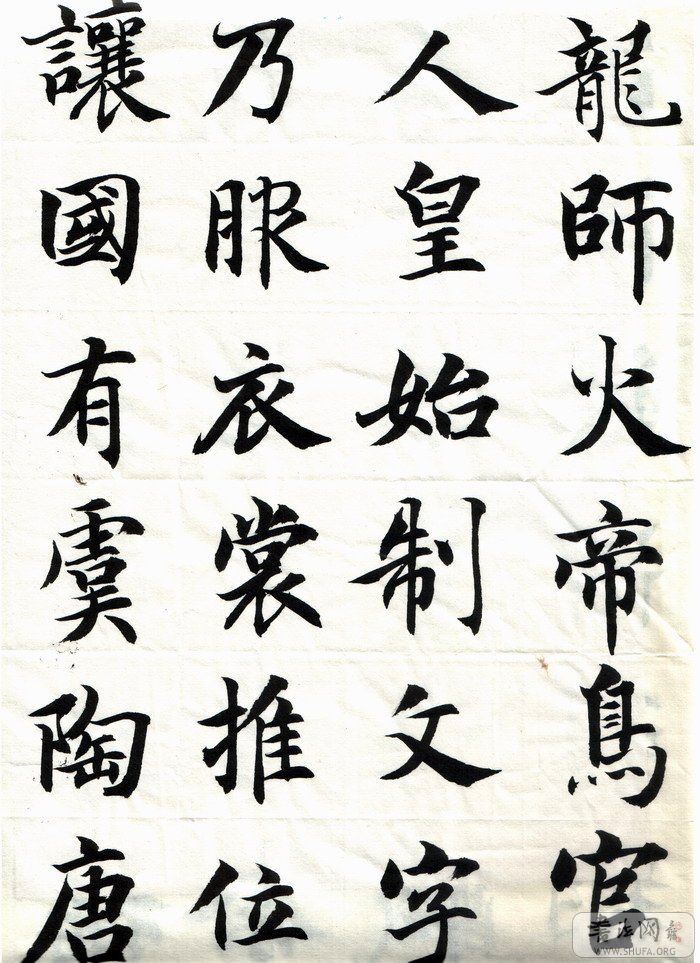 龍師火帝鳥官
人皇始制文字
乃服衣裳推位
讓國有虞陶唐
書法网
WWW.SHUFA.ORG